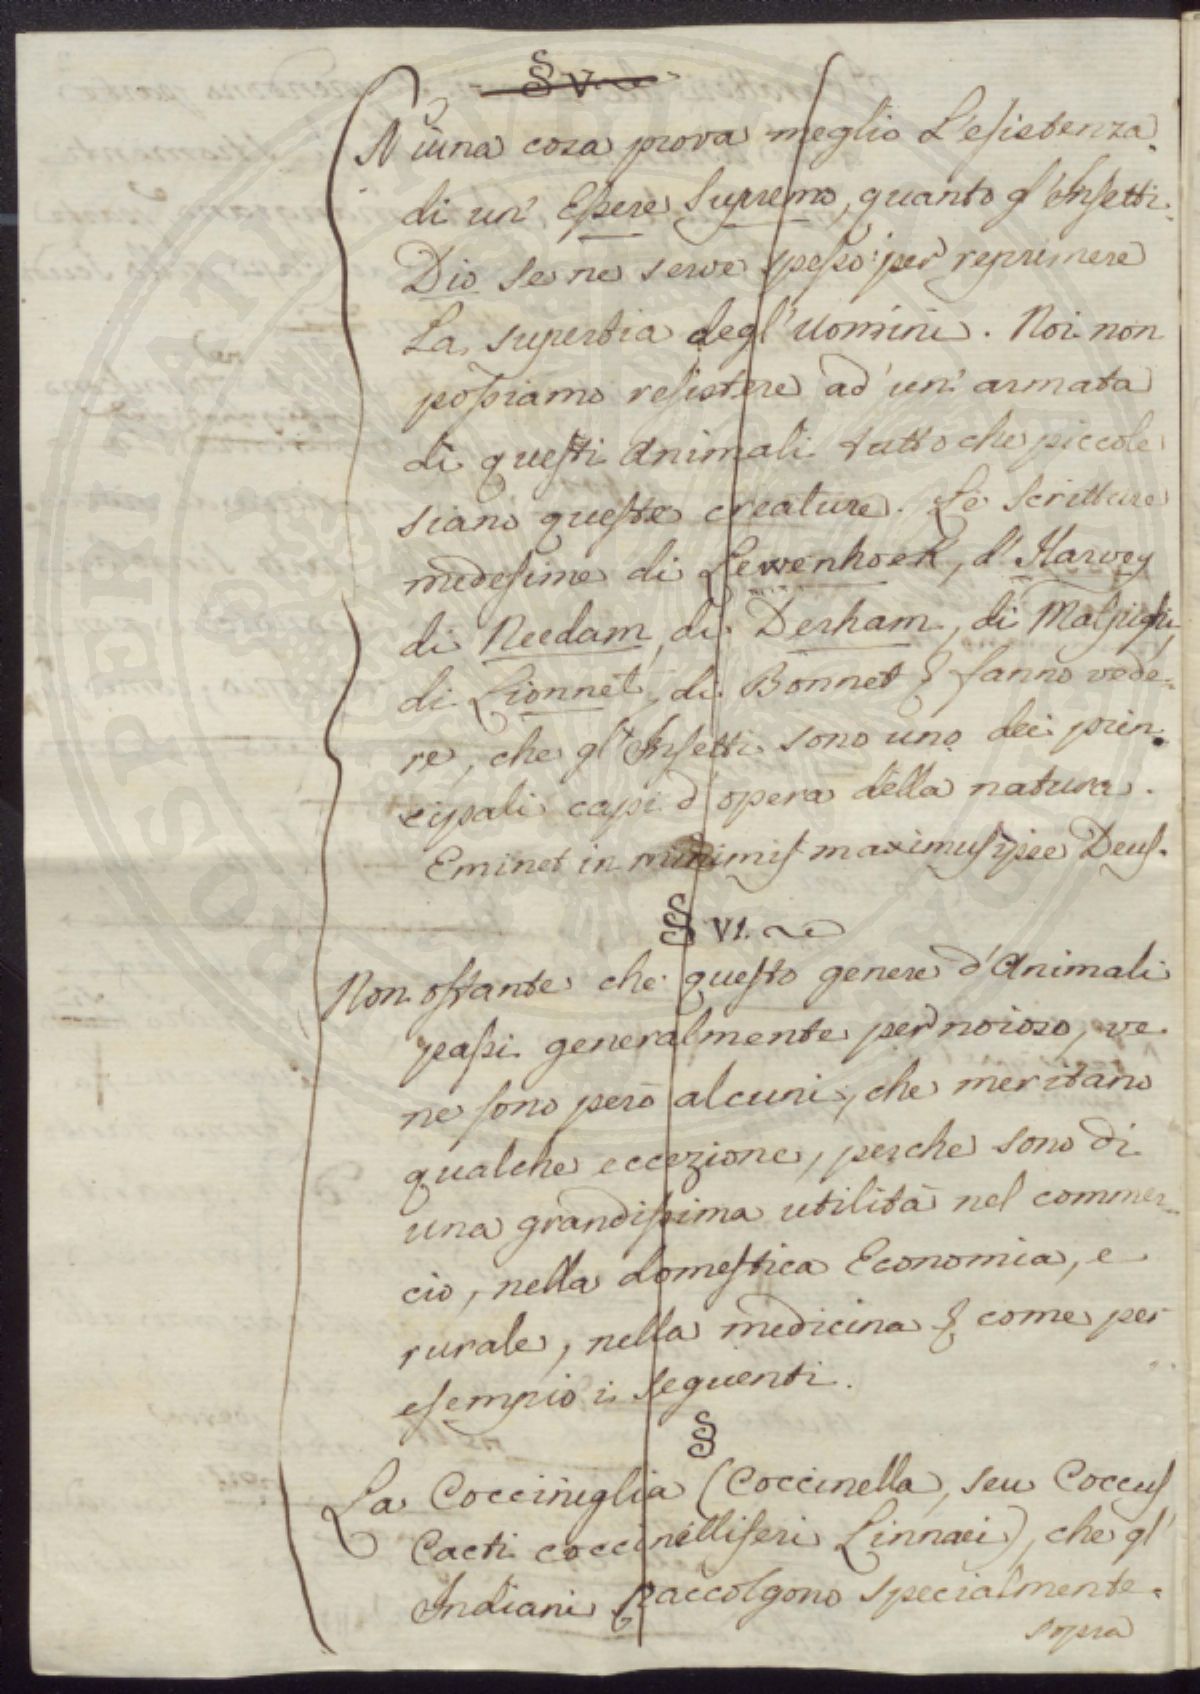 § V.
Niuna cosa prova meglio L'esistenza
di un' Essere Supremo, quanto gl'Insetti.
Dio se ne serve spesso per reprimere
La superbia degl'uomini. Noi non
possiamo resistere ad un' armata
di questi animali tutto che piccole
siano queste creature. Le scritture
medesime di Lewenhoek, d'Harvey
di Needam, di Derham, di Malpighi,
di Lionnet, di Bonnet & fanno vede-
re, che gl'Insetti sono uno dei prin-
cipali capi d'opera della natura.
Eminet in minimis maximus ipse Deus.
§ VI.
Non ostante che questo genere d'Animali
passi generalmente per noioso, ve
ne sono però alcuni, che meritano
qualche eccezione, perche sono di
una grandissima utilità nel commer-
cio, nella domestica Economia, e
rurale, nella medicina & come per
esempio i seguenti.
§
La Cocciniglia (Coccinella, seu Coccus
Cacti coccinelliferi Linnaei), che gl'
Indiani raccolgono specialmente
sopra